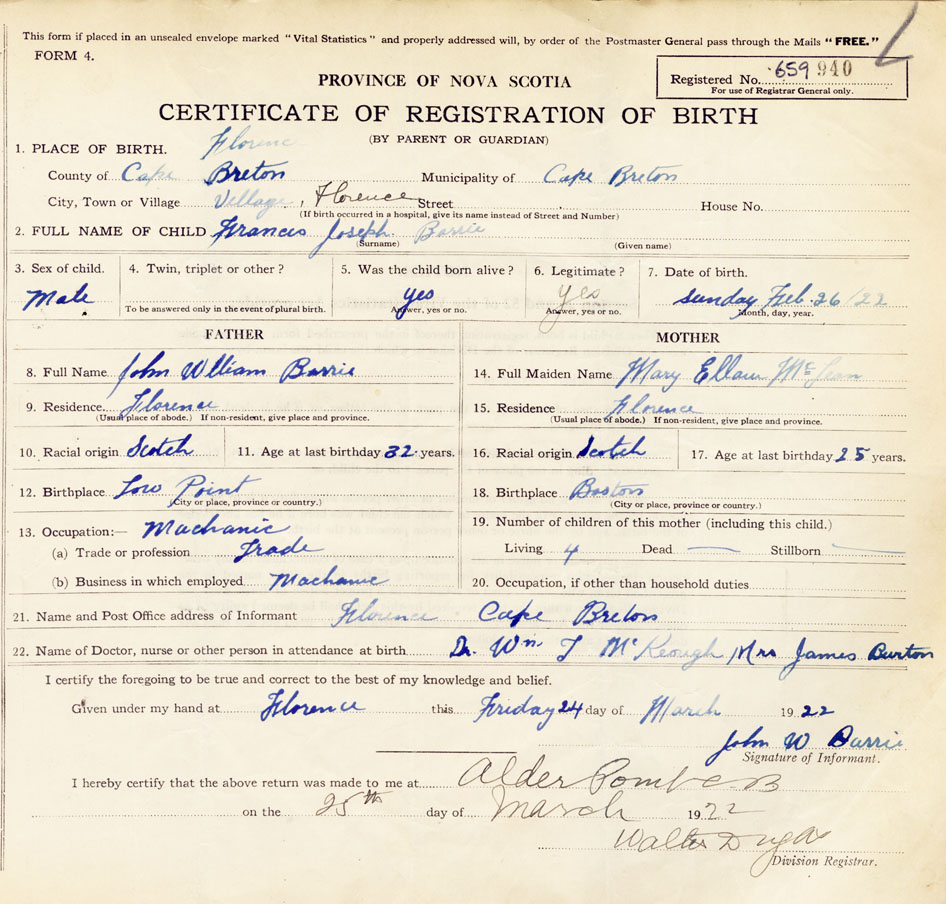 This form if placed in an unsealed envelope marked "Vital Statistics" and properly addressed will, by order of the Postmaster General pass through the Mails "FREE."
FORM 4.
PROVINCE OF NOVA SCOTIA
Registered No. 659 940
For use of Registrar General only.
CERTIFICATE OF REGISTRATION OF BIRTH
(BY PARENT OR GUARDIAN)
1. PLACE OF BIRTH. Florence
County of Cape Breton Municipality of Cape Breton
City, Town or Village Village, Florence Street House No.
(If birth occurred in a hospital, give its name instead of Street and Number)
2. FULL NAME OF CHILD Francis Joseph Barrie
(Surname) (Given name)
3. Sex of child. 4. Twin, triplet or other? 5. Was the child born alive? 6. Legitimate? 7. Date of birth.
Male yes yes Sunday Feb. 26/22
To be answered only in the event of plural birth. Answer, yes or no. Answer, yes or no. Month, day, year.
FATHER MOTHER
8. Full Name John William Barrie 14. Full Maiden Name Mary Ellen
9. Residence Florence 15. Residence Florence
(Usual place of abode.) If non-resident, give place and province. (Usual place of abode.) If non-resident, give place and province.
10. Racial origin Scotch 11. Age at last birthday 32 years. 16. Racial origin Scotch 17. Age at last birthday 25 years.
12. Birthplace Low Point 18. Birthplace Boston
(City or place, province or country.) (City or place, province or country.)
13. Occupation:— Machanic 19. Number of children of this mother (including this child.)
(a) Trade or profession Trade Living 4 Dead — Stillborn —
(b) Business in which employed Machanic 20. Occupation, if other than household duties
21. Name and Post Office address of Informant Florence Cape Breton
22. Name of Doctor, nurse or other person in attendance at birth Dr. Wm. T McKeough, Mrs James Burton
I certify the foregoing to be true and correct to the best of my knowledge and belief.
Given under my hand at Florence this Friday 24 day of March 1922
John W Barrie
Signature of Informant.
I hereby certify that the above return was made to me at Alder Point C.B
on the 25th day of March 1922
Walter
Division Registrar.